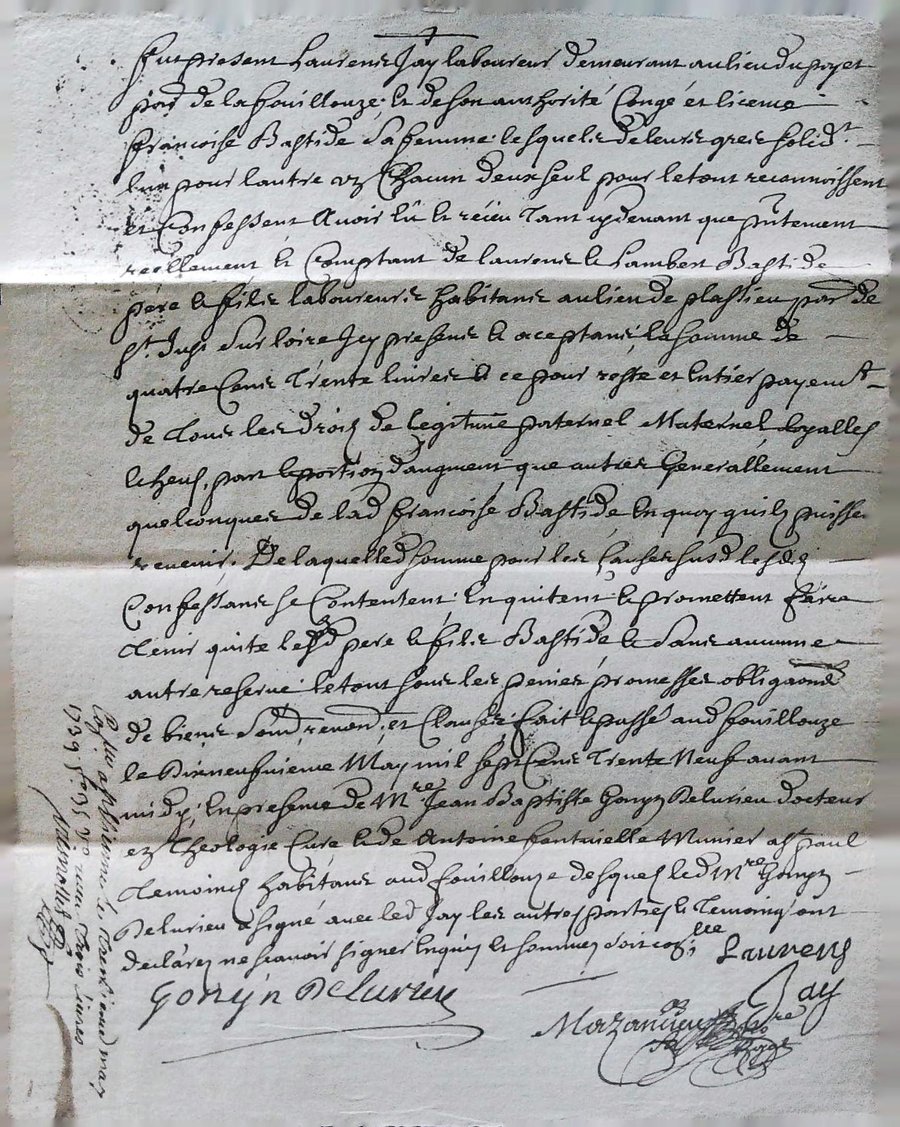 fut present Laurens Jay laboureur demeurant au lieu du poyet
par de la fouillouze et de son authorité Congé et licence
francoise Bastide Sa femme lesquels de leurs grés solidt
lun pour lautre un Chacun deux seul pour letout reconnoissent
et Confessent Avoir Eû et reçeu Tant cydevant que pntement
reellement et Comptant de laurens et Lambert Bastide
pere et fils laboureurs habitans au lieu de plassieu par de
St Just Sur loire Icy presens et aceptans la somme de
quatre Cens Trente livres et ce pour reste et Entier payemt
de Tous les drois de legitime paternel Maternel
part et portion d'augment que autres Generallement
quelconques de lad francoise Bastide En quoy quils puisse
revenir. De laquelled somme pour les Causes susd lesd
Confessans se Contentent En quitent et promettent faire
Tenir quite lesd pere et fils Bastide et Sans aucunne
autre reserve letout sous les peines promesses obligaons
de biens renond et Clauses fait et passé aud fouillouze
le Dixneufvieme May mil sept Cens Trente Neuf avant
midy, En presence de Mre Jean Baptiste Gonyn Delurieu docteur
en Theologie Cure et de Antoine fontvielle Munier a St paul
Temoins habitans aud fouillouze desquels led Mre Gonyn
Delurieu a signé avec led Jay les autres parties et Temoins ont
declarez ne scavoir signer Enquis et sommez
Laurens
Jay
Gonyn Delurieu
Mazancieu
re
may
1739
trois livres